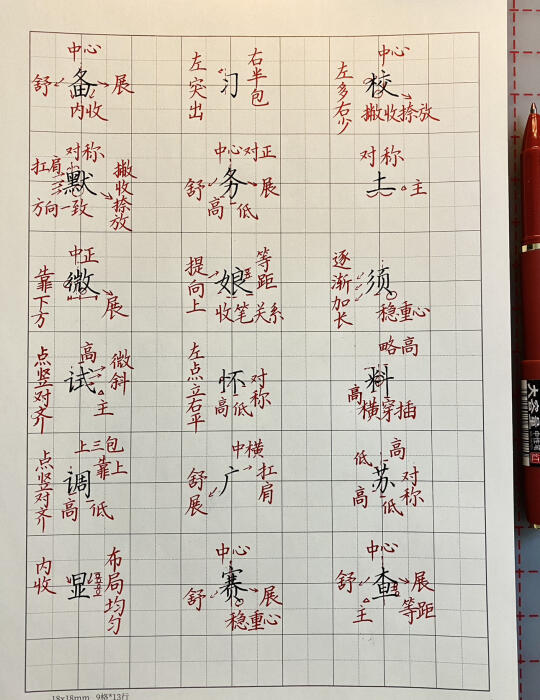 中心
舒 备 展
内收
左突出
习
右半包
中心
左多右少
校
撇收捺放
对称
扛肩
默
撇收捺放
方向一致
中心对正
舒 务 展
高 低
对称
土
主
中正
靠下方
微
展
提向上
娘
等距
收笔关系
逐渐加长
须
稳重心
点竖对齐
高
试
微斜
主
左点立右平
怀
对称
高 低
略高
料
高
横穿插
点竖对齐
上三包
靠上
调
高 低
中横
扛肩
广
舒展
低 高
苏
高 低
对称
内收
显
布局均匀
中心
舒 赛 展
稳重心
中心
舒 查 展
主
等距
18x18mm 9格*13行
大容量